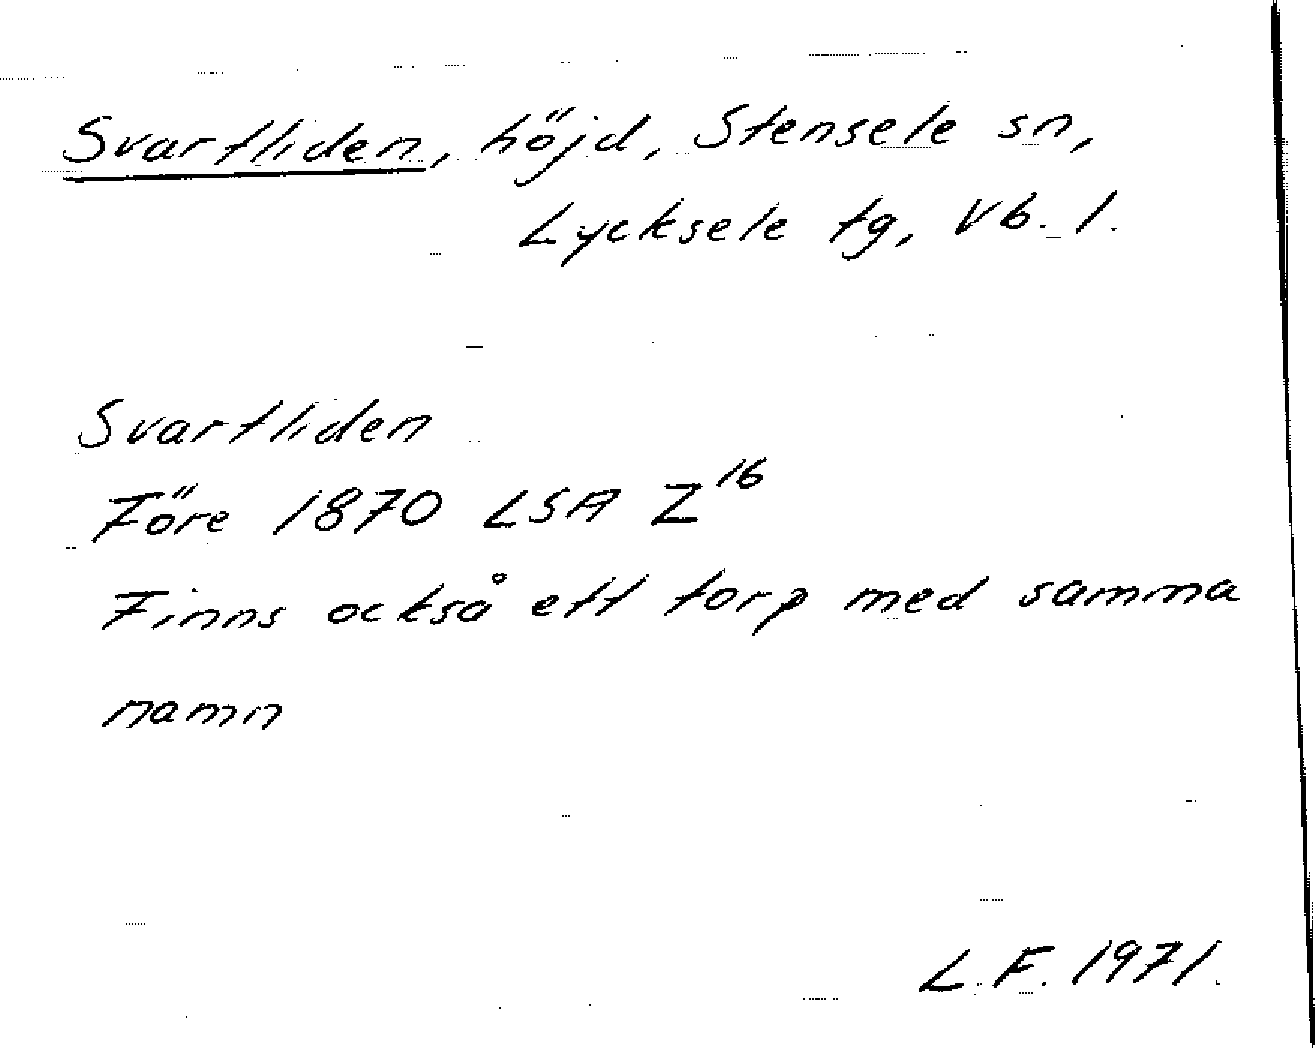 Svartliden, höjd, Stensele sn,
Lycksele tg, Vb. l.
Svartliden
Före 1870 LSA Z16
Finns också ett torp med samma
namn
L.F. 1971.